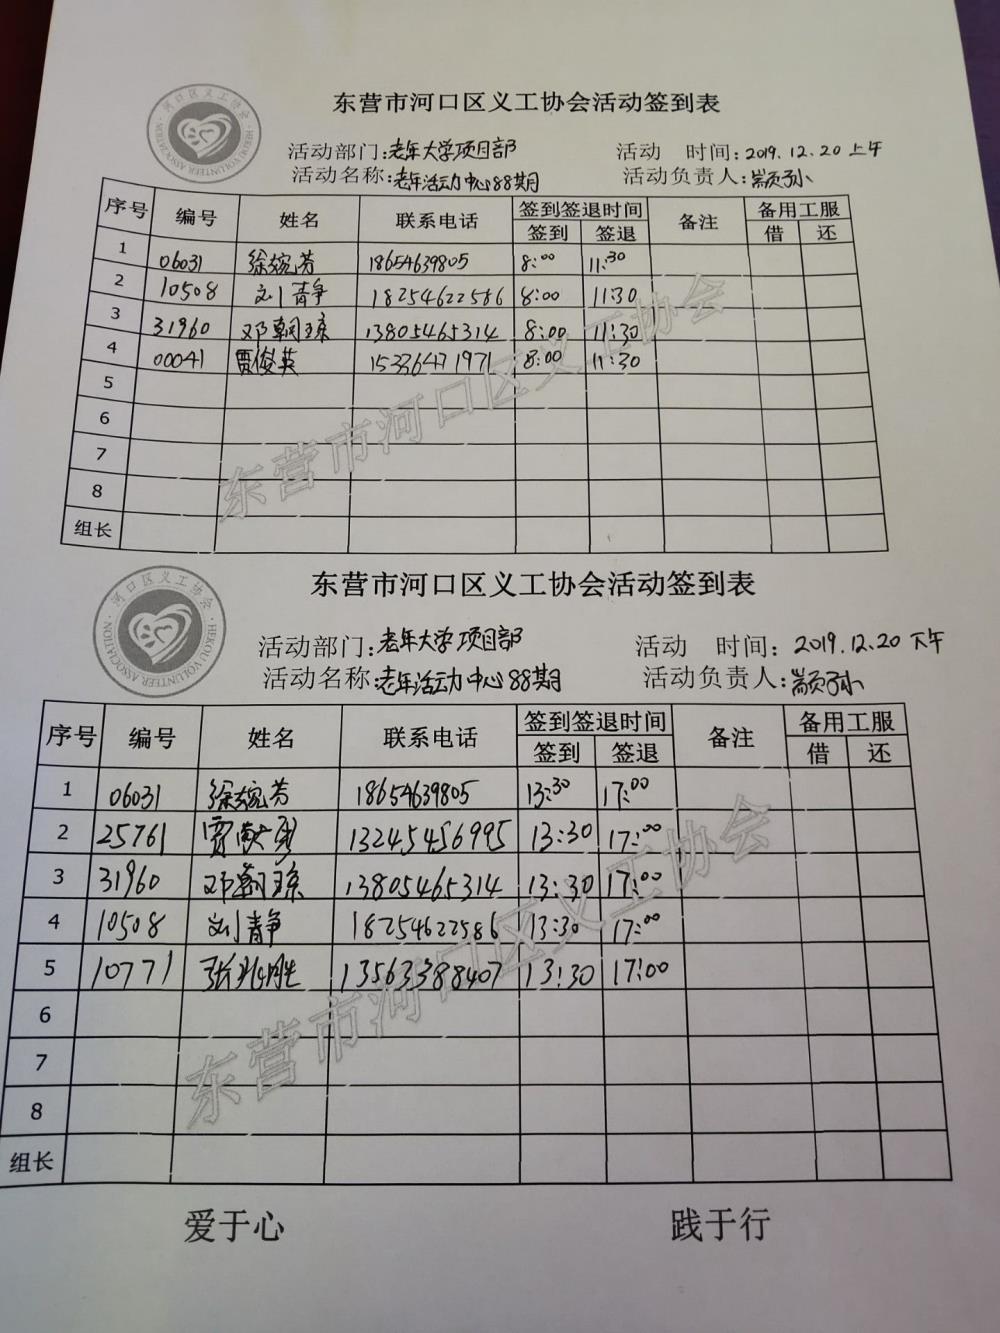 东营市河口区义工协会活动签到表
河口区义工协会
HEKOU VOLUNTEER ASSOCIATION
活动部门:老年大学项目部 活动 时间:2019.12.20上午
活动名称:老年活动中心88期 活动负责人:
序号 编号 姓名 联系电话 签到签退时间 备注 备用工服
签到 签退 借 还
1 06031 徐婉芳 18654639805 8:00 11:30
2 10508 刘静 18254622586 8:00 11:30
3 31960 邓朝琼 13805465314 8:00 11:30
4 00041 贾俊英 15336471971 8:00 11:30
5
6
7
8
组长
东营市河口区义工协会
东营市河口区义工协会活动签到表
河口区义工协会
HEKOU VOLUNTEER ASSOCIATION
活动部门:老年大学项目部 活动 时间:2019.12.20下午
活动名称:老年活动中心88期 活动负责人:
序号 编号 姓名 联系电话 签到签退时间 备注 备用工服
签到 签退 借 还
1 06031 徐婉芳 18654639805 13:30 17:00
2 25761 13245456995 13:30 17:00
3 31960 邓朝琼 13805465314 13:30 17:00
4 10508 刘静 18254622586 13:30 17:00
5 10771 张兆胜 13563388407 13:30 17:00
6
7
8
组长
东营市河口区义工协会
爱于心 践于行